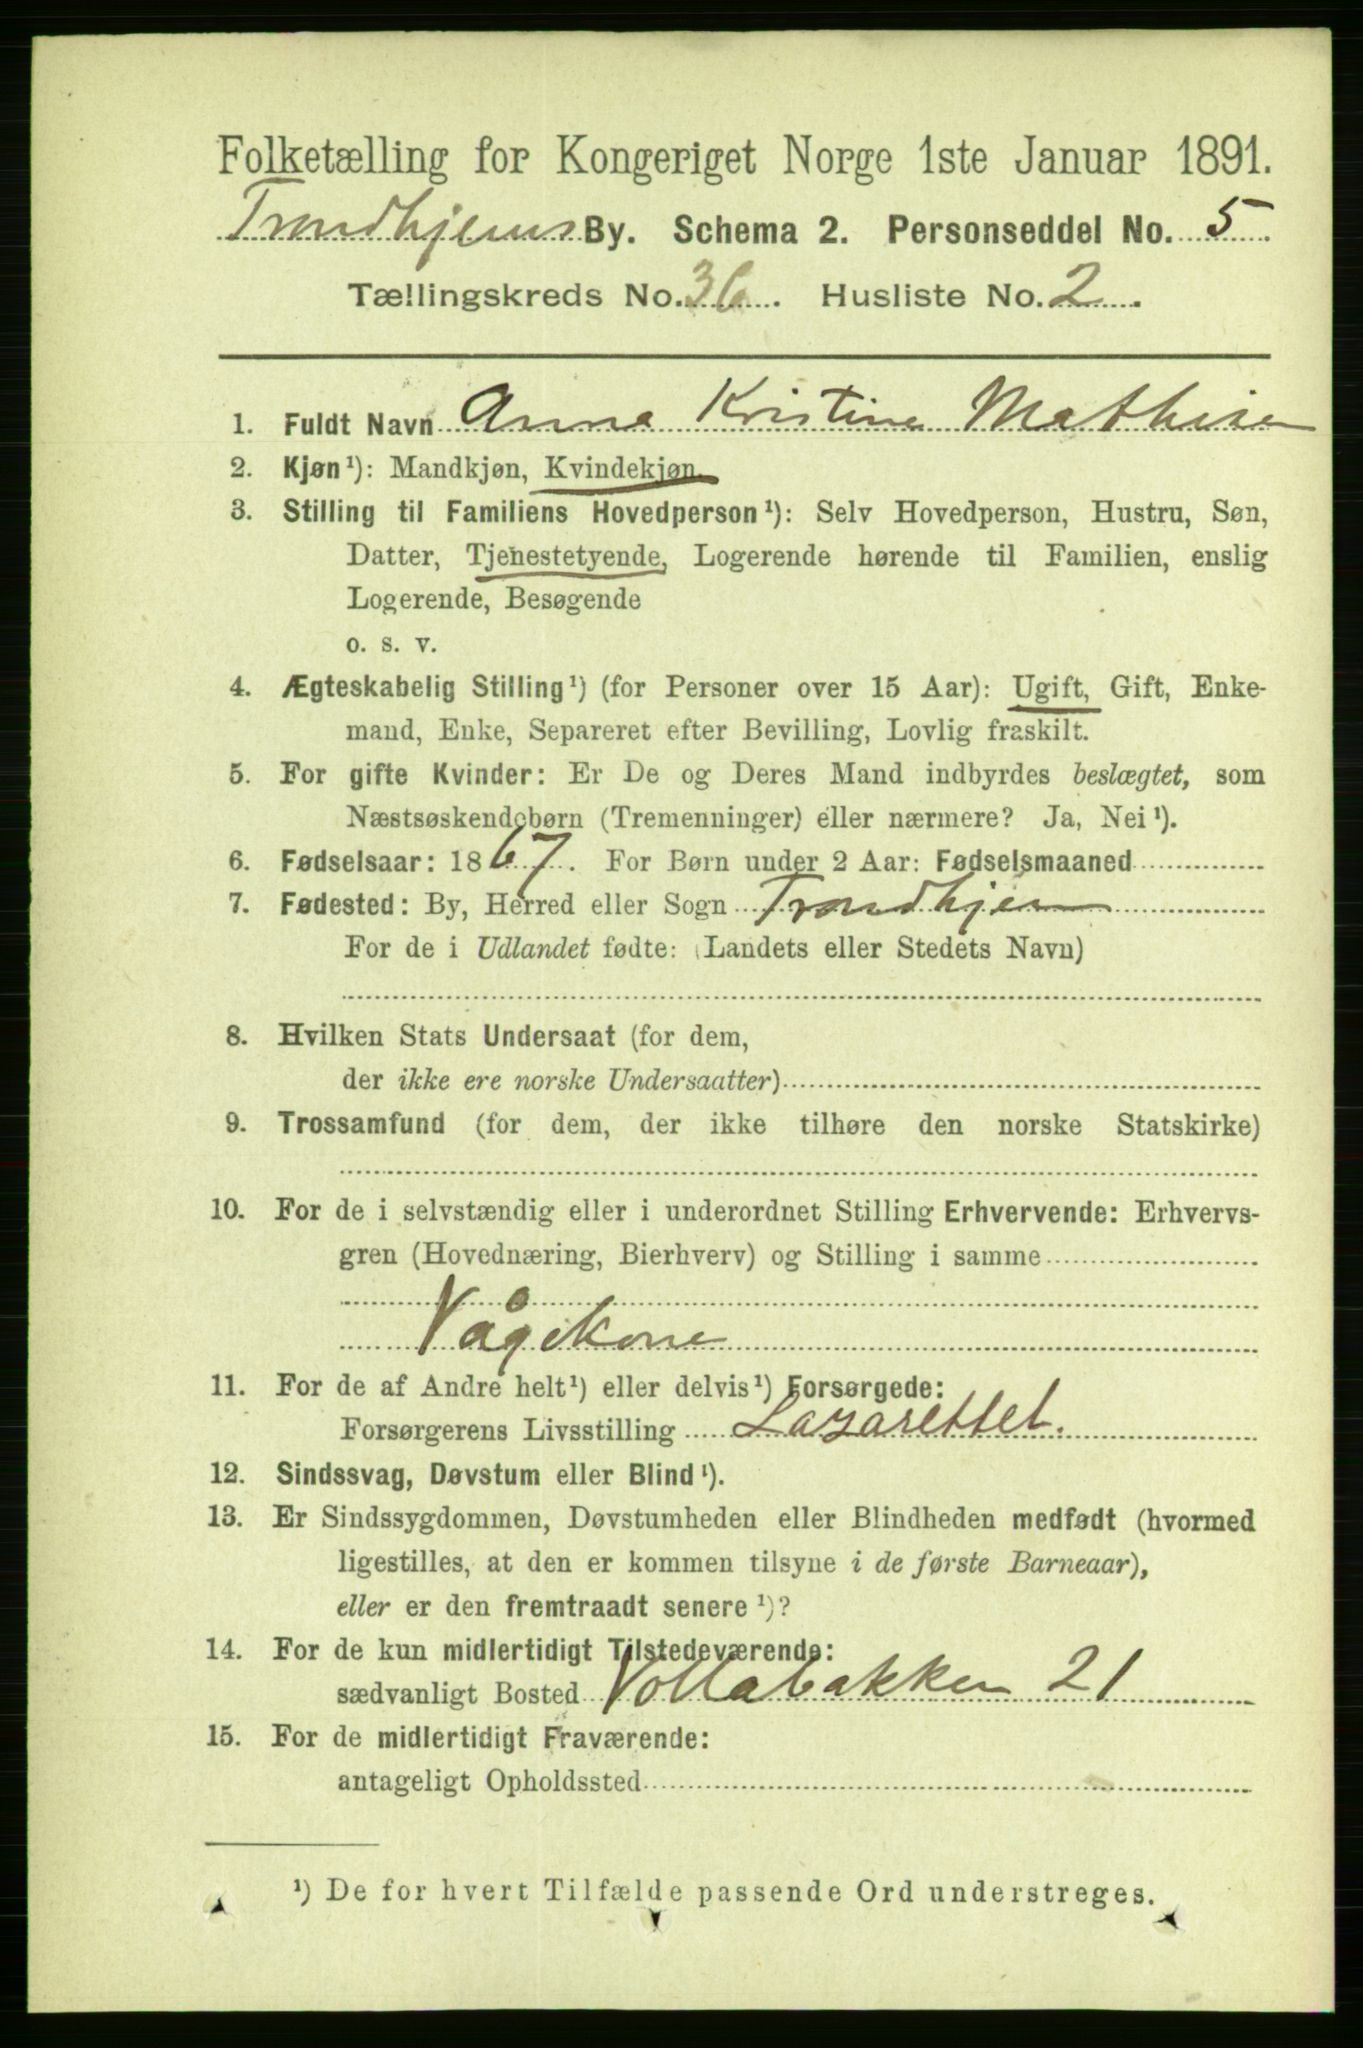 Folketælling for Kongeriget Norge 1ste Januar 1891.
Trondhjems By. Schema 2. Personseddel No. 5
Tællingskreds No. 36. Husliste No. 2.
1. Fuldt Navn Anna Kristine Mathisen
2. Kjøn¹): Mandkjøn, Kvindekjøn.
3. Stilling til Familiens Hovedperson¹): Selv Hovedperson, Hustru, Søn,
Datter, Tjenestetyende, Logerende hørende til Familien, enslig
Logerende, Besøgende
o. s. v.
4. Ægteskabelig Stilling¹) (for Personer over 15 Aar): Ugift, Gift, Enke-
mand, Enke, Separeret efter Bevilling, Lovlig fraskilt.
5. For gifte Kvinder: Er De og Deres Mand indbyrdes beslægtet, som
Næstsøskendebørn (Tremenninger) eller nærmere? Ja, Nei¹).
6. Fødselsaar: 1867. For Børn under 2 Aar: Fødselsmaaned
7. Fødested: By, Herred eller Sogn Trondhjem
For de i Udlandet fødte: (Landets eller Stedets Navn)
8. Hvilken Stats Undersaat (for dem,
der ikke ere norske Undersaatter)
9. Trossamfund (for dem, der ikke tilhøre den norske Statskirke)
10. For de i selvstændig eller i underordnet Stilling Erhvervende: Erhvervs-
gren (Hovednæring, Bierhverv) og Stilling i samme
Vågekone
11. For de af Andre helt¹) eller delvis¹) Forsørgede:
Forsørgerens Livsstilling Lazarettet.
12. Sindssvag, Døvstum eller Blind¹).
13. Er Sindssygdommen, Døvstumheden eller Blindheden medfødt (hvormed
ligestilles, at den er kommen tilsyne i de første Barneaar),
eller er den fremtraadt senere¹)?
14. For de kun midlertidigt Tilstedeværende:
sædvanligt Bosted Vollabakken 21
15. For de midlertidigt Fraværende:
antageligt Opholdssted
¹) De for hvert Tilfælde passende Ord understreges.